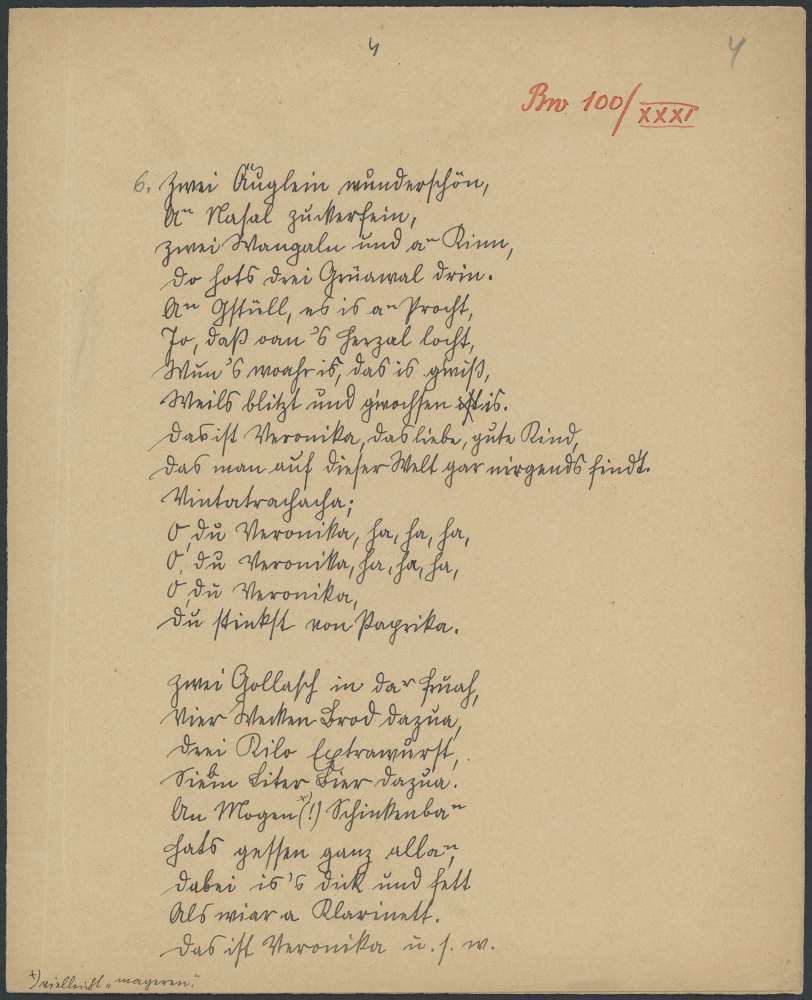 4
4
Bw 100/XXXI
6. Zwei Äuglein wunderschön,
An Nasal zuckerfein,
zwei Wangaln und an Kinn,
do hats drei Grüawal drin.
An Gstüll, es is an Procht,
Jo, daß oan 's Herzal locht,
Wun's woahr is, das is gwiß,
Weils blitzt und gwochsen is.
Das ist Veronika, das liebe, gute Kind,
das man auf dieser Welt gar nirgends findt.
Vintatrachacha;
O, du Veronika, ha, ha, ha,
O, du Veronika, ha, ha, ha,
O, du Veronika,
du stinkst von Paprika.
Zwei Gollasch in dar Fruah,
Vier Wecken Brod dazua,
Drei Kilo Extrawurst,
Siebn Liter Bier dazua.
An Mogen x)(!) Schinkenban
hats gessen ganz allan,
dabei is's dick und fett
Als wiar a Klarinett.
Das ist Veronika u. s. w.
x) vielleicht „mageren".